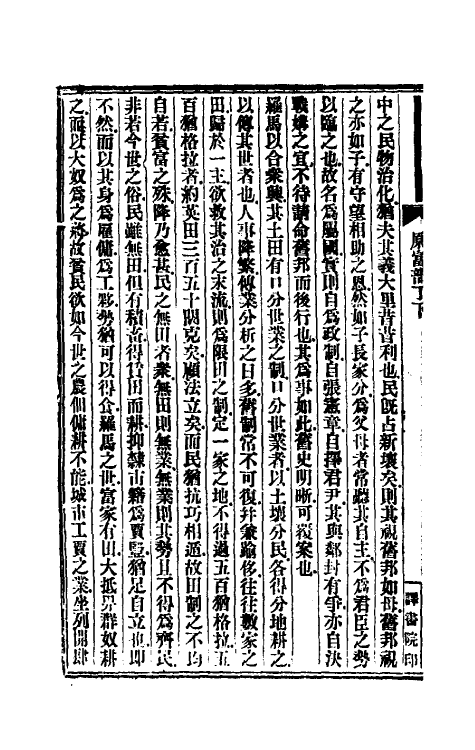 原富部丁下
中之民物治化猶夫其義大里昔昔利也民旣占新壤矣則其視舊邦如母舊邦視
之亦如子有守望相助之恩然如子長家分爲父母者常聽其自主不爲君臣之勢
以臨之也故名爲屬國實則自爲政制自張憲章自擇君尹其與鄰封有爭亦自決
戰媾之宜不待請命舊邦而後行也其爲事如此舊史明晰可覆案也
羅馬以合衆興其土田有口分世業之制口分世業者以土壤分民各得分地耕之
以傳其世者也人事降繁傳業分析之日多舊制常不可復幷兼踰侈往往數家之
田歸於一主欲救其治之末流則爲限田之制定一家之地不得過五百猶格拉五
百猶格拉者約英田三百五十闊克矣顧法立矣而民猶抗巧相遁故田制之不均
自若貧富之殊降乃愈甚民之無田者衆無田則無業無業則其勢且不得爲齊民
非若今世之俗民雖無田但有積畜得賃田而耕抑隸市籍爲賈豎猶足自立也卽
不然而以其身爲雇傭爲工夥勢猶可以得食羅馬之世富家有田大抵畀群奴耕
之而以大奴爲之將故貧民欲如今世之農佃傭耕不能城市工賈之業坐列開肆
譯書院印